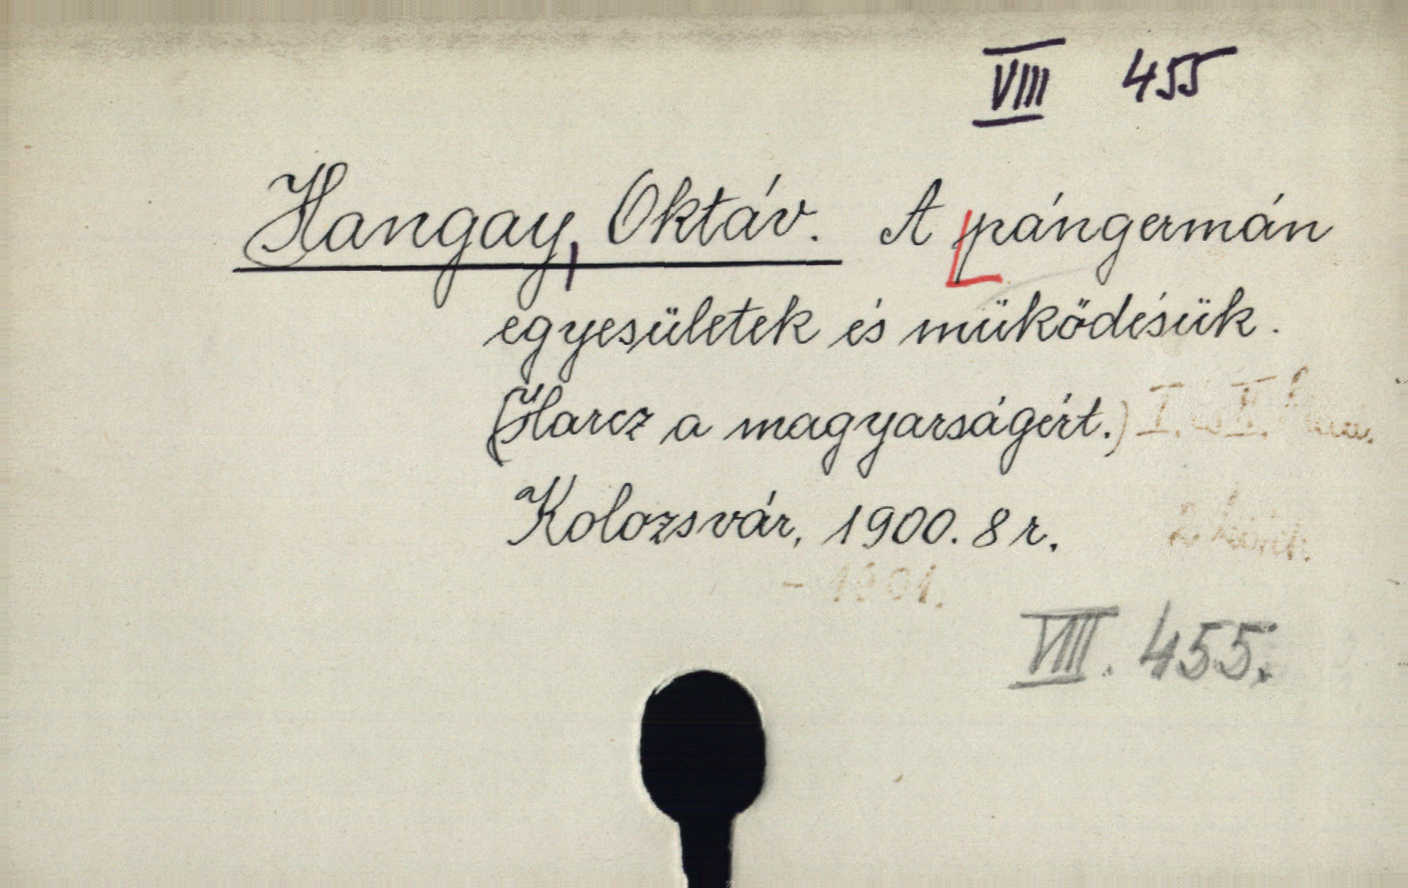 VIII 455
Hangay, Oktáv. A pángermán
egyesületek és müködésük.
(Harcz a magyarságért.) I. és II.
Kolozsvár, 1900. 8 r. 2 kötet.
- 1901.
VIII. 455.